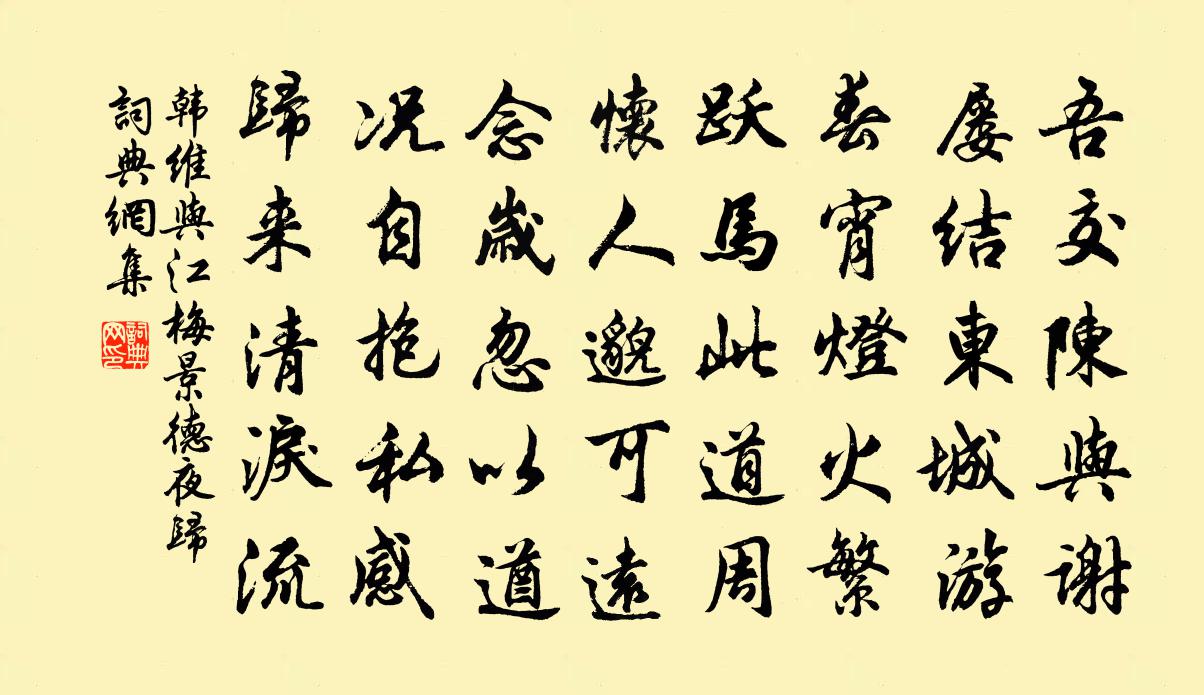 吾交陳與谢
屡结東城游
春宵燈火繁
跃馬此道周
懷人邈可遠
念歲忽以遒
况自抱私感
歸来清淚流
韩维與江梅景德夜歸
詞典網集
詞典网印